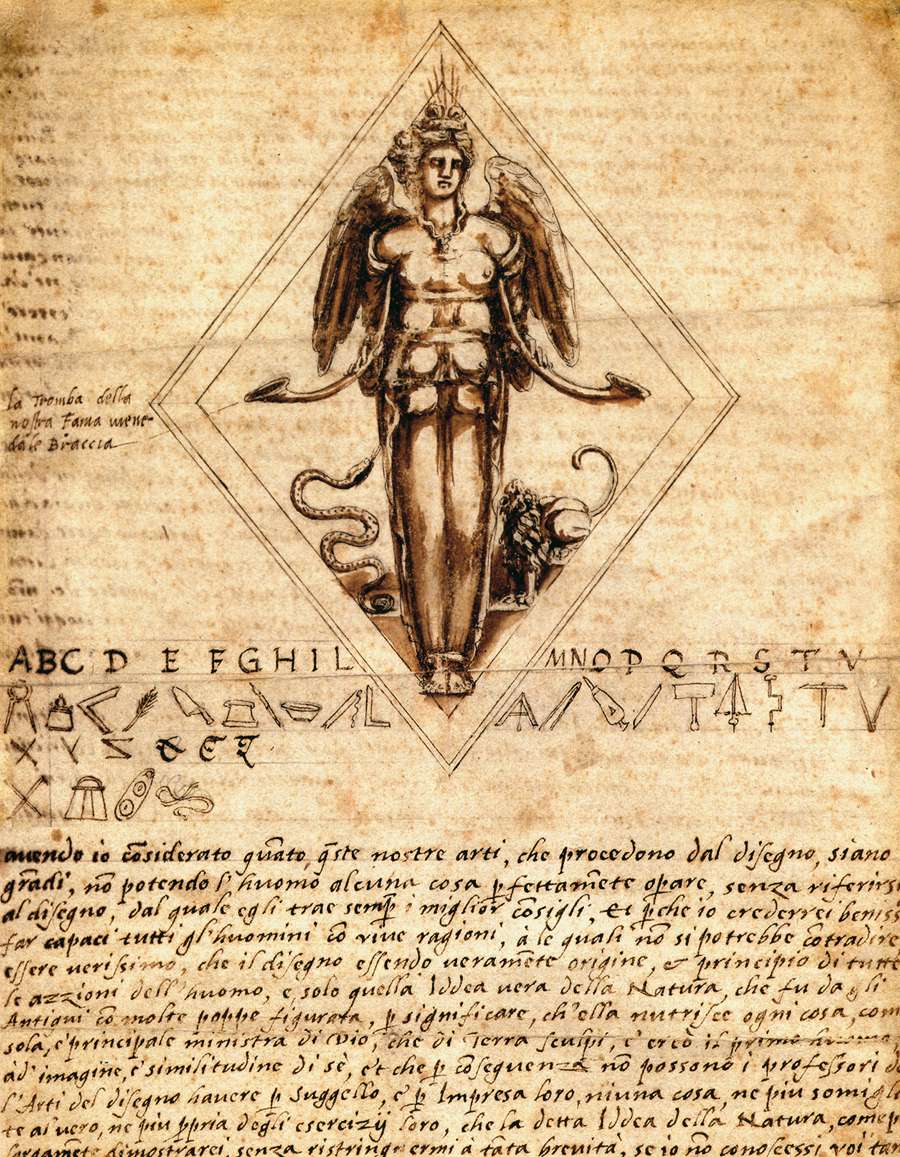 la Tromba della
nostra Fama viene
dale Braccia
A B C D E F G H I L M N O P Q R S T V
X Y Z & Є
auendo io cōsiderato quāto, q̄ste nostre arti, che procedono dal disegno, siano
grādi, nō potendo l'huomo alcuna cosa ꝑfettamēte oꝑare, senza riferirsi
al disegno, dal quale egli trae semp̄ i miglior cōsigli, Et ꝑche io crederrei beniss
far capaci tutti gl'huomini cō vive ragioni, à le quali nō si potrebbe cōtradire
essere verissimo, che il disegno essendo veramēte origine, & principio di tutte
le azzioni dell'huomo, e, solo quella Iddea vera della Natura, che fu da gli
Antiqui cō molte poppe figurata, ꝑ significare, ch'ella nutrisce ogni cosa, com
sola, e' principale ministra di Dio, che di Terra sculpì, e' creò il primo huomo
ad' imagine, e' similitudine di sè, e't che ꝑ cōseguenza nō possono i professori de
l'Arti del disegno havere ꝑ Suggello, e' ꝑ Impresa loro, niuna cosa, ne più somigla
te al vero, ne più ꝑpria degli esercizij loro, che la detta Iddea della Natura, come p
largamēte dimostrarei, senza ristringermi à tāta brevità, se io nō conoscessi voi tan